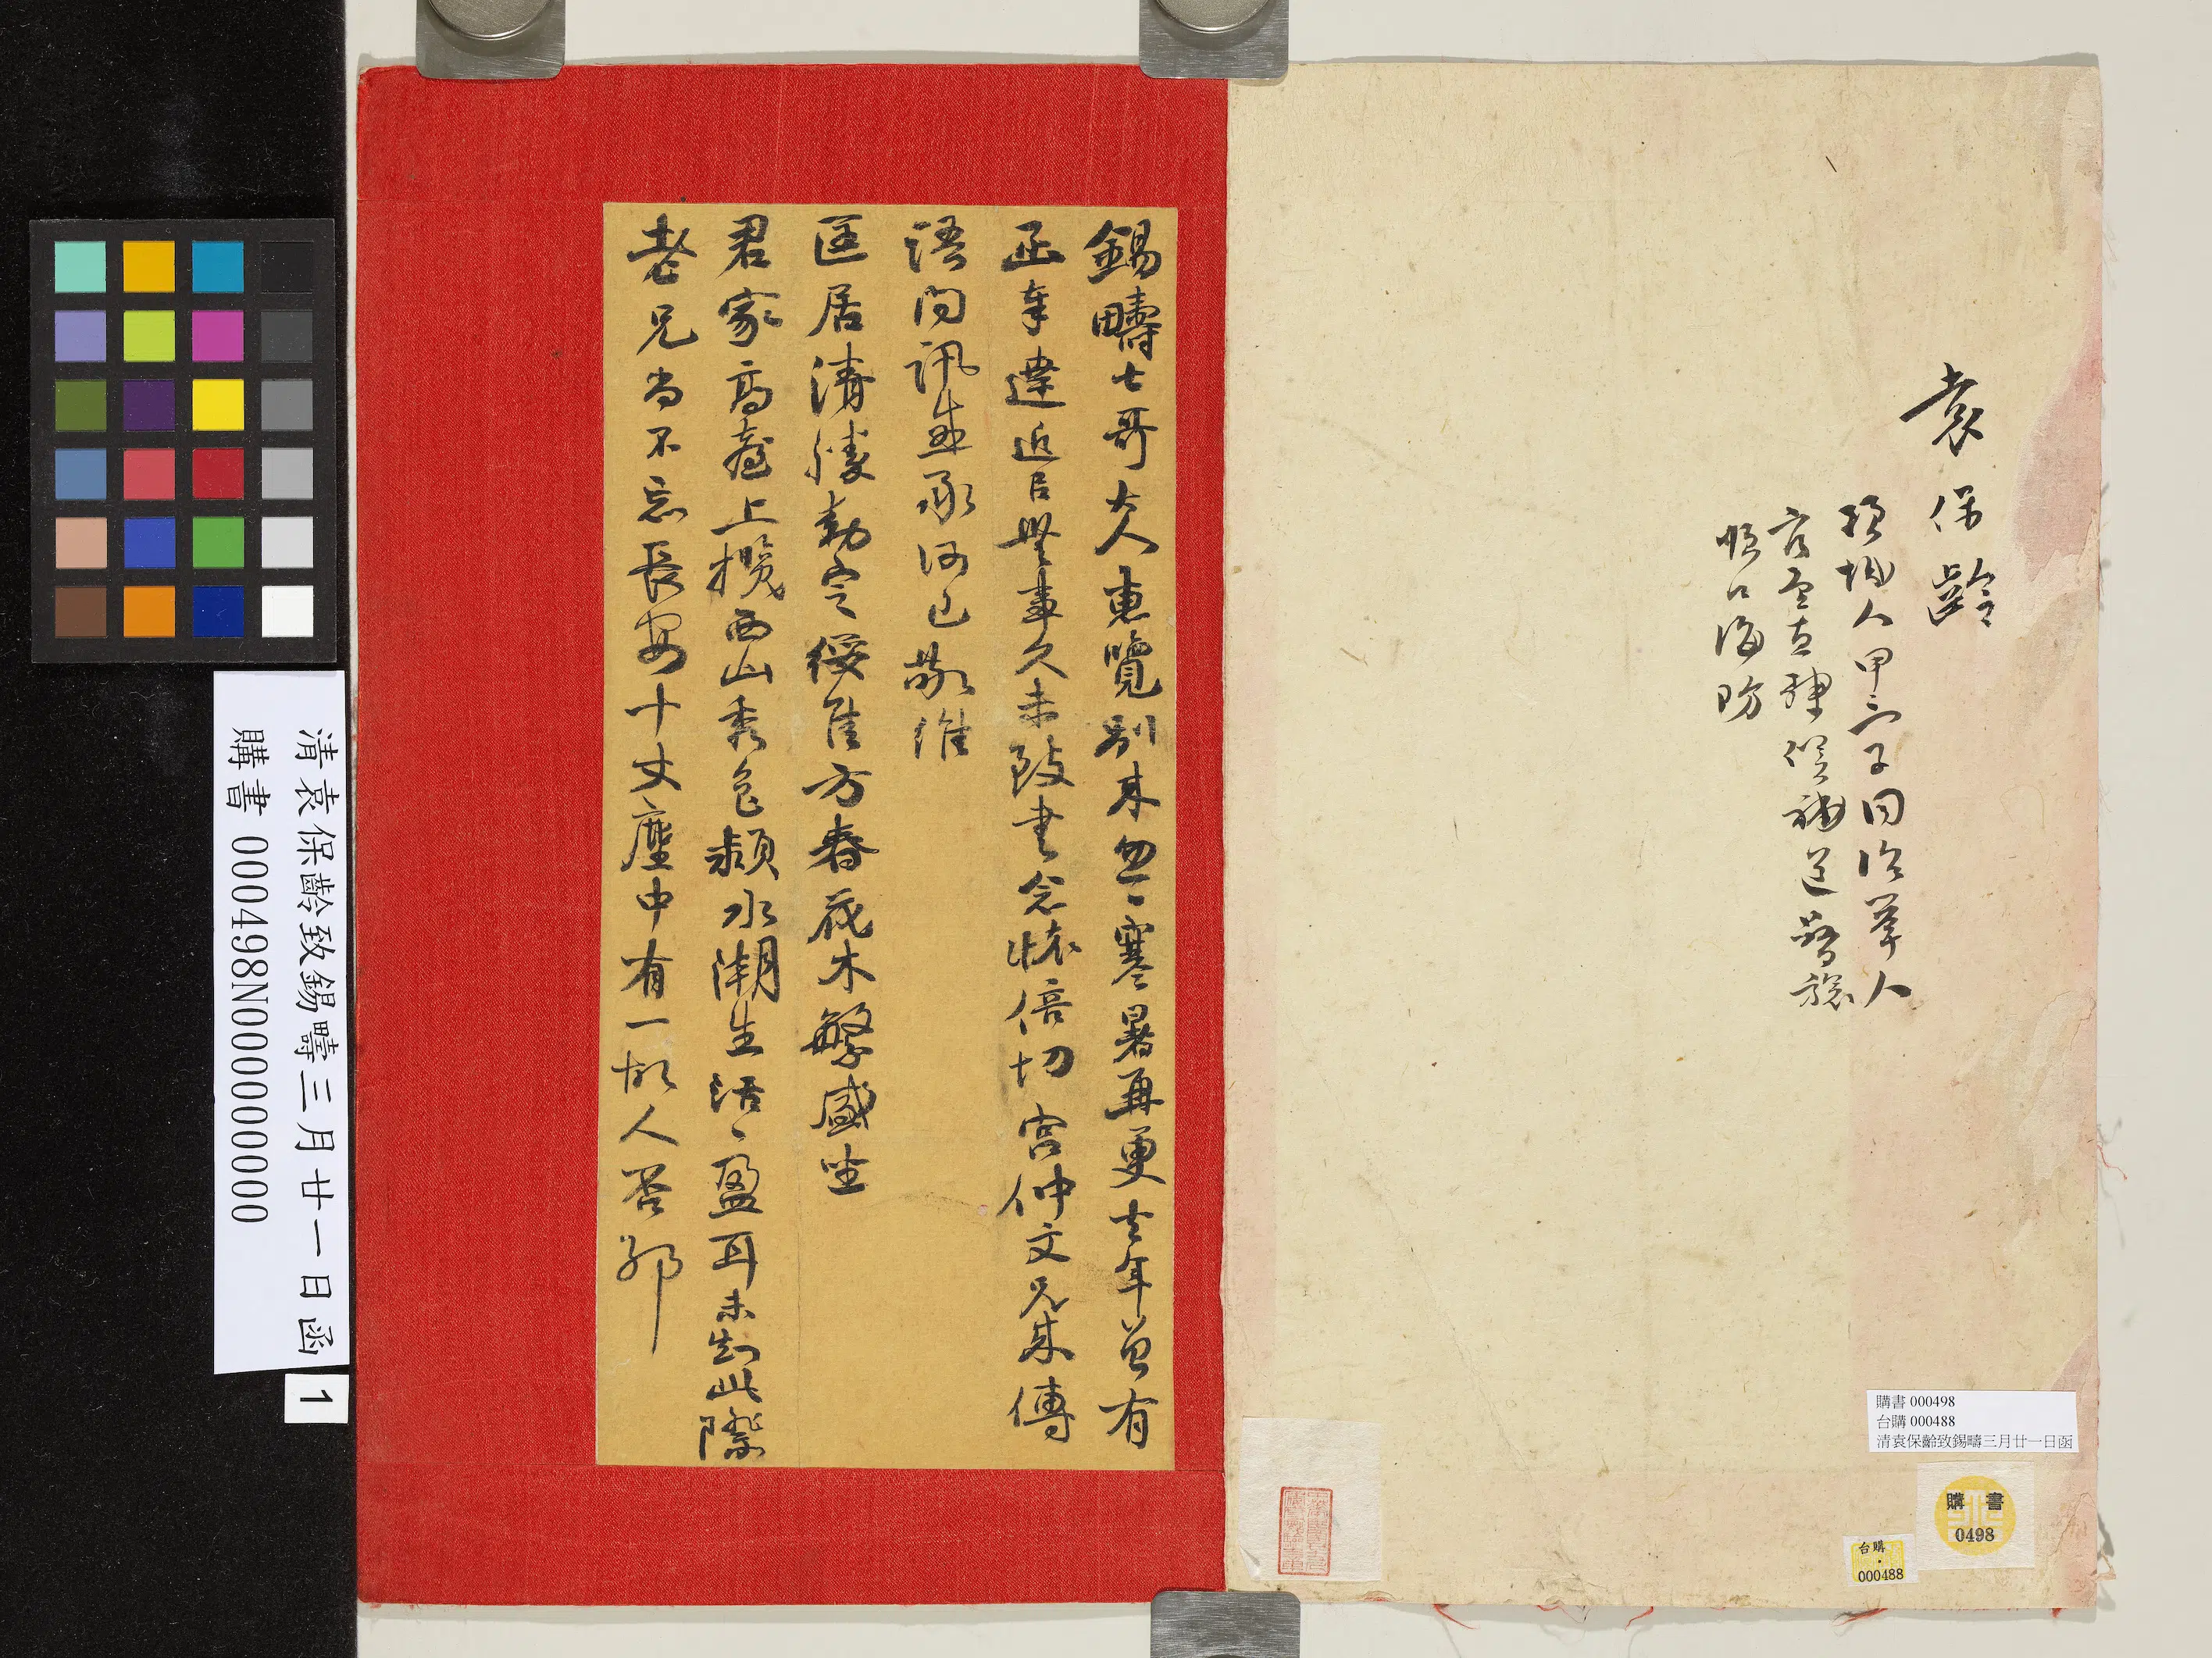 袁保齡
項城人甲三子同治舉人
官至直隸候補道督辦
順口海防
錫疇七哥大人惠覽別來忽〻寒暑再更去年曾有
函奉達近日無事久未致書念懷倍切宮仲文兄來傳
語問訊並承
匡居清勝動定綏佳方春花木繁盛坐
君家高臺上攬西山秀色潁水潮生活〻盈耳未知此際
老兄尚不忘長安十丈塵中有一故人否耶
購書 000498
台購 000488
清袁保齡致錫疇三月廿一日函
購書
0498
台購
000488
清袁保齡致錫疇三月廿一日函
購書 000498N000000000
1